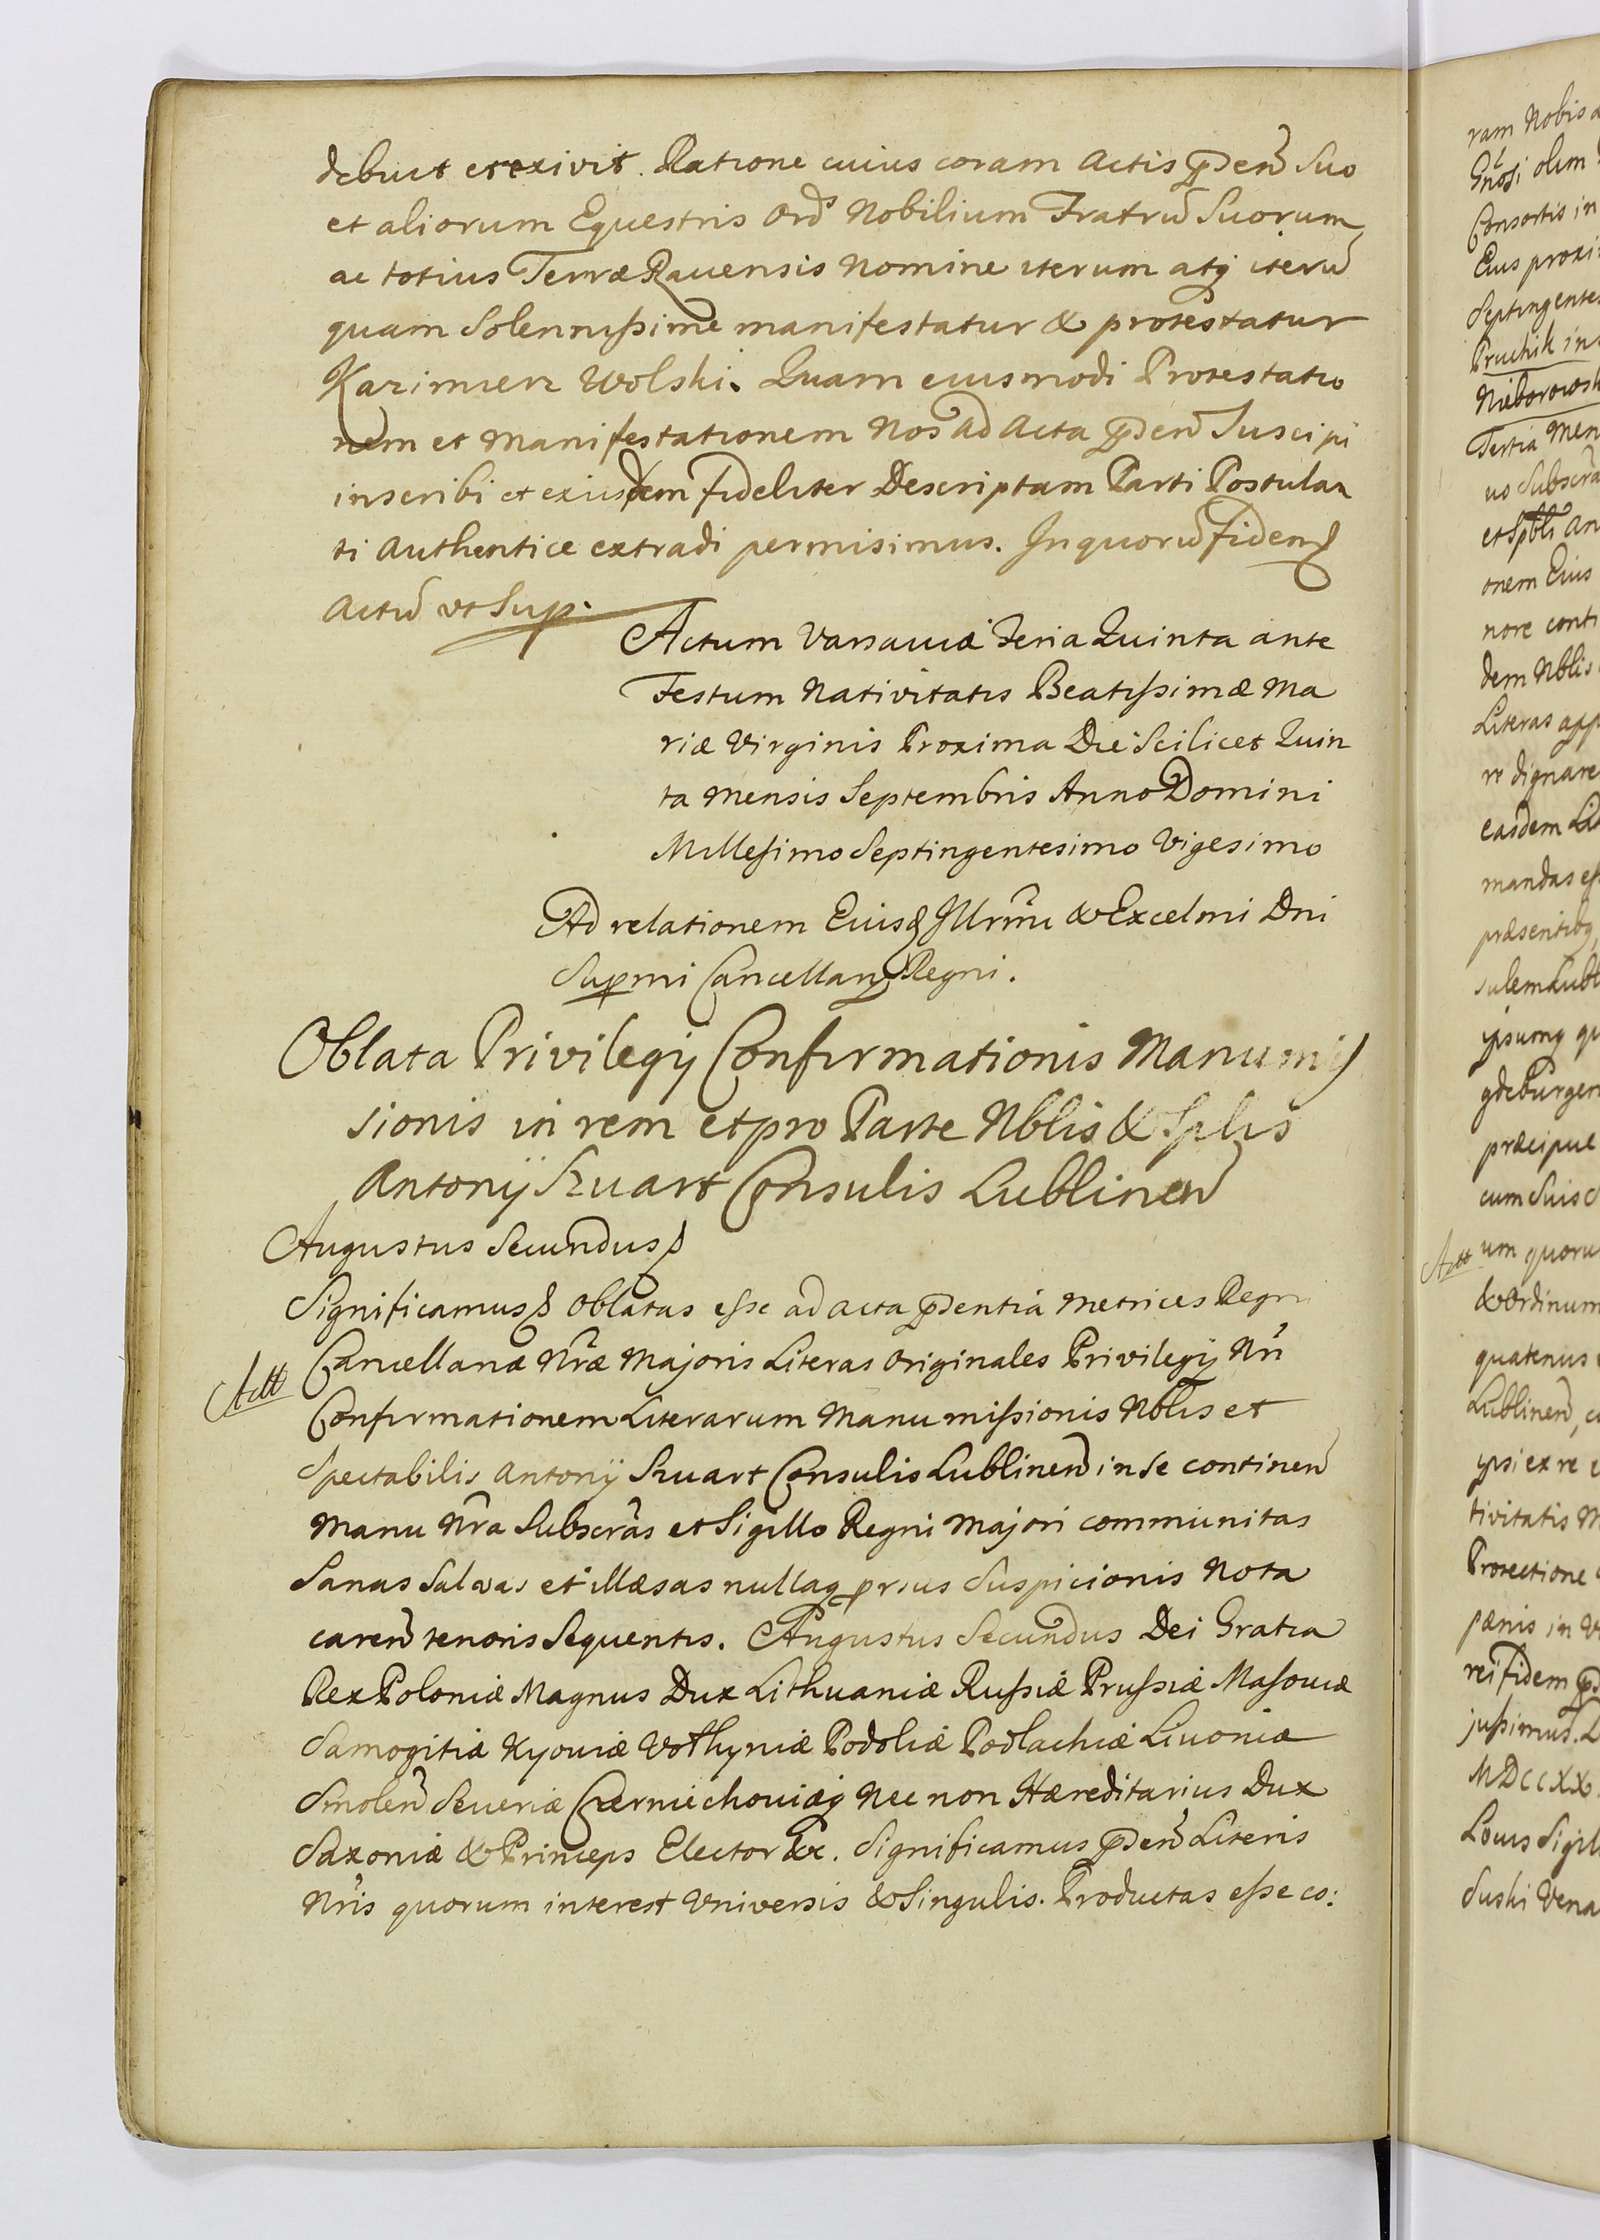 debuit et exivit. Ratione cuius coram Actis pñden̄ Suo
et aliorum Equestris Ord̄s Nobilium Fratrū Suorum
ac totius Terræ Ravensis Nomine iterum atq́ iterū
quam Solennißime manifestatur & protestatur
Kazimierz Wolski. Quam eiusmodi Protestatio
nem et Manifestationem Nos ad Acta pñden̄ Suscipi
inscribi et exiisdem fideliter Descriptam Parti Postulan
ti Authentice extradi permisimus. In quorū fidem
Actū ut Sup.
Actum Varsaviæ Feria Quinta ante
Festum Nativitatis Beatißimæ Ma
riæ Virginis Proxima Die Scilicet Quin
ta Mensis Septembris Anno Domini
Millesimo Septingentesimo Vigesimo
Ad relationem Eiusd Illrm̄i & Excelmi Dni
Supmi Cancellarij Regni.
Oblata Privilegij Confirmationis Manumis
sionis in rem et pro Parte Nblis & Splis
Antonij Szuart Consulis Lublinen̄
Augustus Secundus
Significamus Oblatas eße ad acta pñdentia Metrices Regni
Cancellariæ Nr̄æ Majoris Literas Originales Privilegij Nr̄i
Confirmationem Literarum Manumißionis Nblis et
Spectabilis Antonij Szuart Consulis Lublinen̄ in Se continen̄
Manu Nr̄a Subscr̄as et Sigillo Regni Majori communitas
Sanas Salvas et illæsas nullaq prsus Suspicionis Nota
caren̄ tenoris Sequentis. Augustus Secundus Dei Gratia
Rex Poloniæ Magnus Dux Lithuaniæ Rußiæ Prußiæ Masoviæ
Samogitiæ Kyoviæ Volhyniæ Podoliæ Podlachiæ Livoniæ
Smolen̄ Severiæ Czerniechoviæq́ Nec non Hæreditarius Dux
Saxoniæ & Princeps Elector &c. Significamus pñden̄ Literis
Nr̄is quorum interest Universis & Singulis. Productas eße co:
ram Nobis
olim
Consortis in
Eius proxi
Septingente
Pruchik in
Nieborowsk
Tertia Men
uo Subscr̄a
et Spbli An
onem Eius
nore conti
dem Nblis
Literas app
re dignare
easdem Li
mandas eß
præsentibq
sulem Lubl
ipsumq qu
gdeburgen
præcipue
cum Suis
um quoru
& Ordinum
quatenus
Lublinen̄,
ipsi ex re
tivitatis M
Protectione
pænis in
rei fidem
jußimus.
MDCCXX.
Locus Sigil
Suski Vena